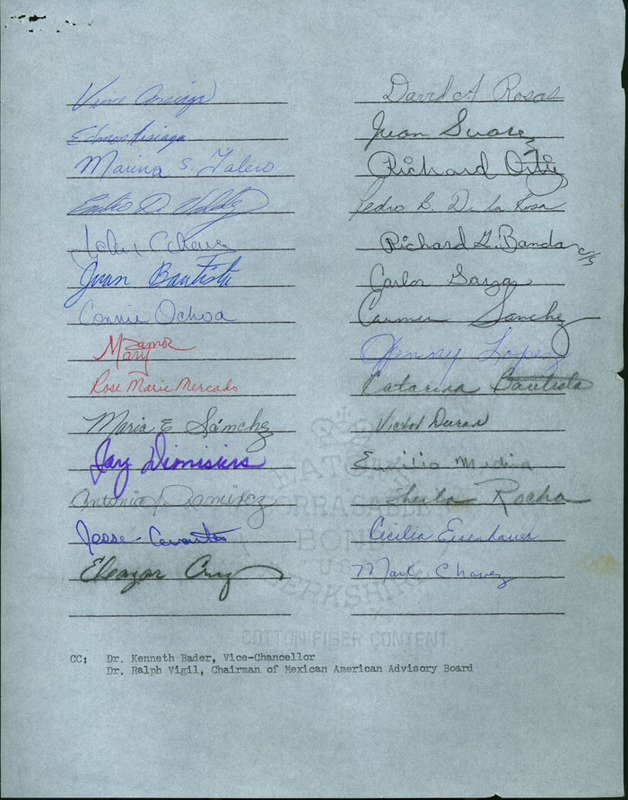 Marina S. Talero
John C Chavez
Juan Bautista
Connie Ochoa
Mary Ramos
Rose Marie Mercado
Mario E Sánchez
Jay Dionisius
Antonio J. Ramirez
Jesse Cervantes
Eleazar Cruz
David A Rosas
Juan Suarez
Richard Ortiz
Pedro B. De La Rosa
Richard L. Banda c/s
Carlos Garza
Carmen Sanchez
Jenny Lopez
Catarina Bautista
Victor Duran
Emilio Medina
Sheila Rocha
Cecilia Eisenhauer
Mark Chavez
EATON'S
CORRASABLE
BOND
USA
BERKSHIRE
COTTON FIBER CONTENT
CC: Dr. Kenneth Bader, Vice-Chancellor
Dr. Ralph Vigil, Chairman of Mexican American Advisory Board